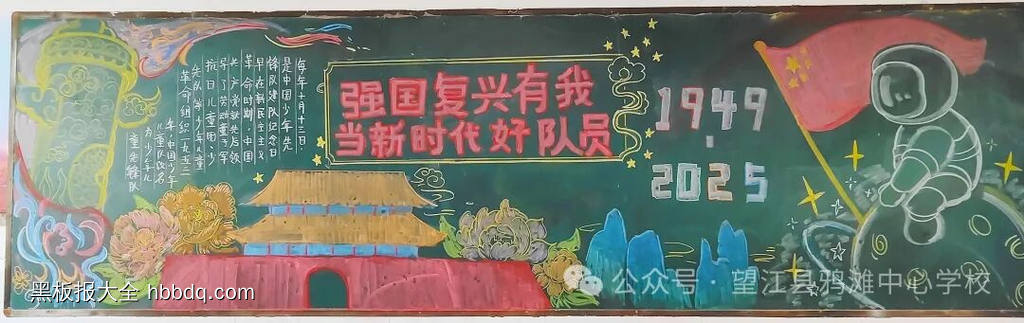 每年十月十三日，
是中国少年先
锋队建队纪念日
早在新民主主义
革命时期，中国
共产党就先后领
导了劳动童子军
抗日儿童团、少
先队等少年儿童
革命组织一九五三
年中国少年
儿童队改名
为少
先锋队
强国复兴有我
当新时代好队员
1949
·
2025
黑板报大全 hbbdq.com
公众号·望江县鸦滩中心学校